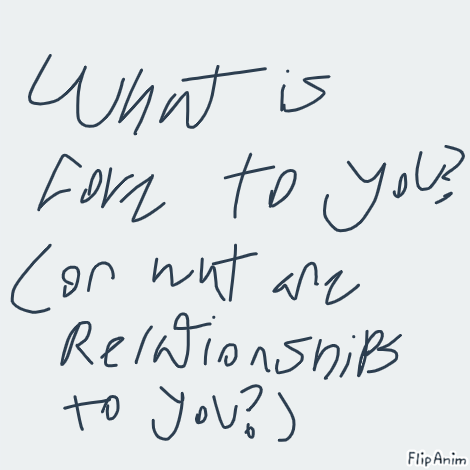 What is
Love to you?
(or what are
Relationships
to you?)
FlipAnim